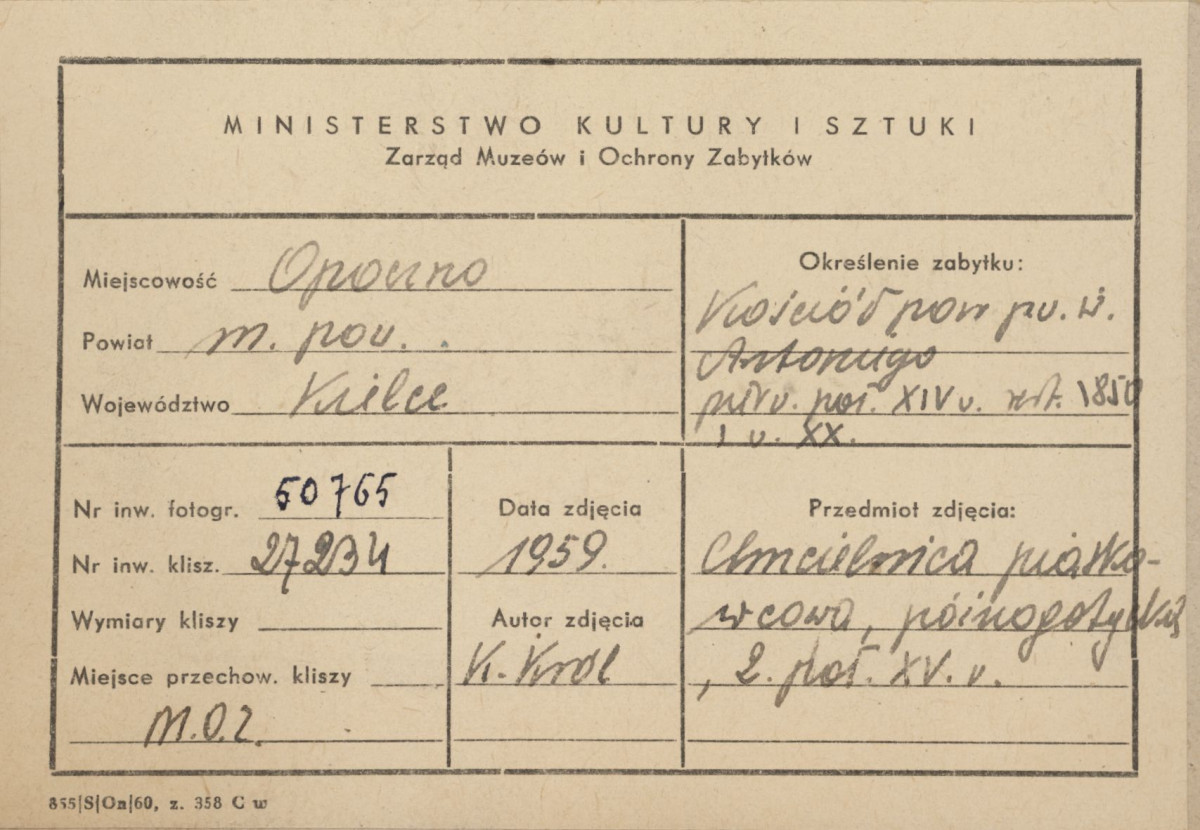 MINISTERSTWO KULTURY I SZTUKI
Zarząd Muzeów i Ochrony Zabytków
Miejscowość Opoczno
Powiat m. pow.
Województwo Kielce
Określenie zabytku:
Kościół par pw. św.
Antoniego
poł. XIV w. rest. 1850
i w. XX.
Nr inw. fotogr. 50765
Nr inw. klisz. 27234
Wymiary kliszy
Miejsce przechow. kliszy
M.O.Z.
Data zdjęcia
1959.
Autor zdjęcia
K. Król
Przedmiot zdjęcia:
Chrzcielnica piasko-
wcowa, późnogotycka
, 2. poł. XV. w.
855|S|On|60, z. 358 C w